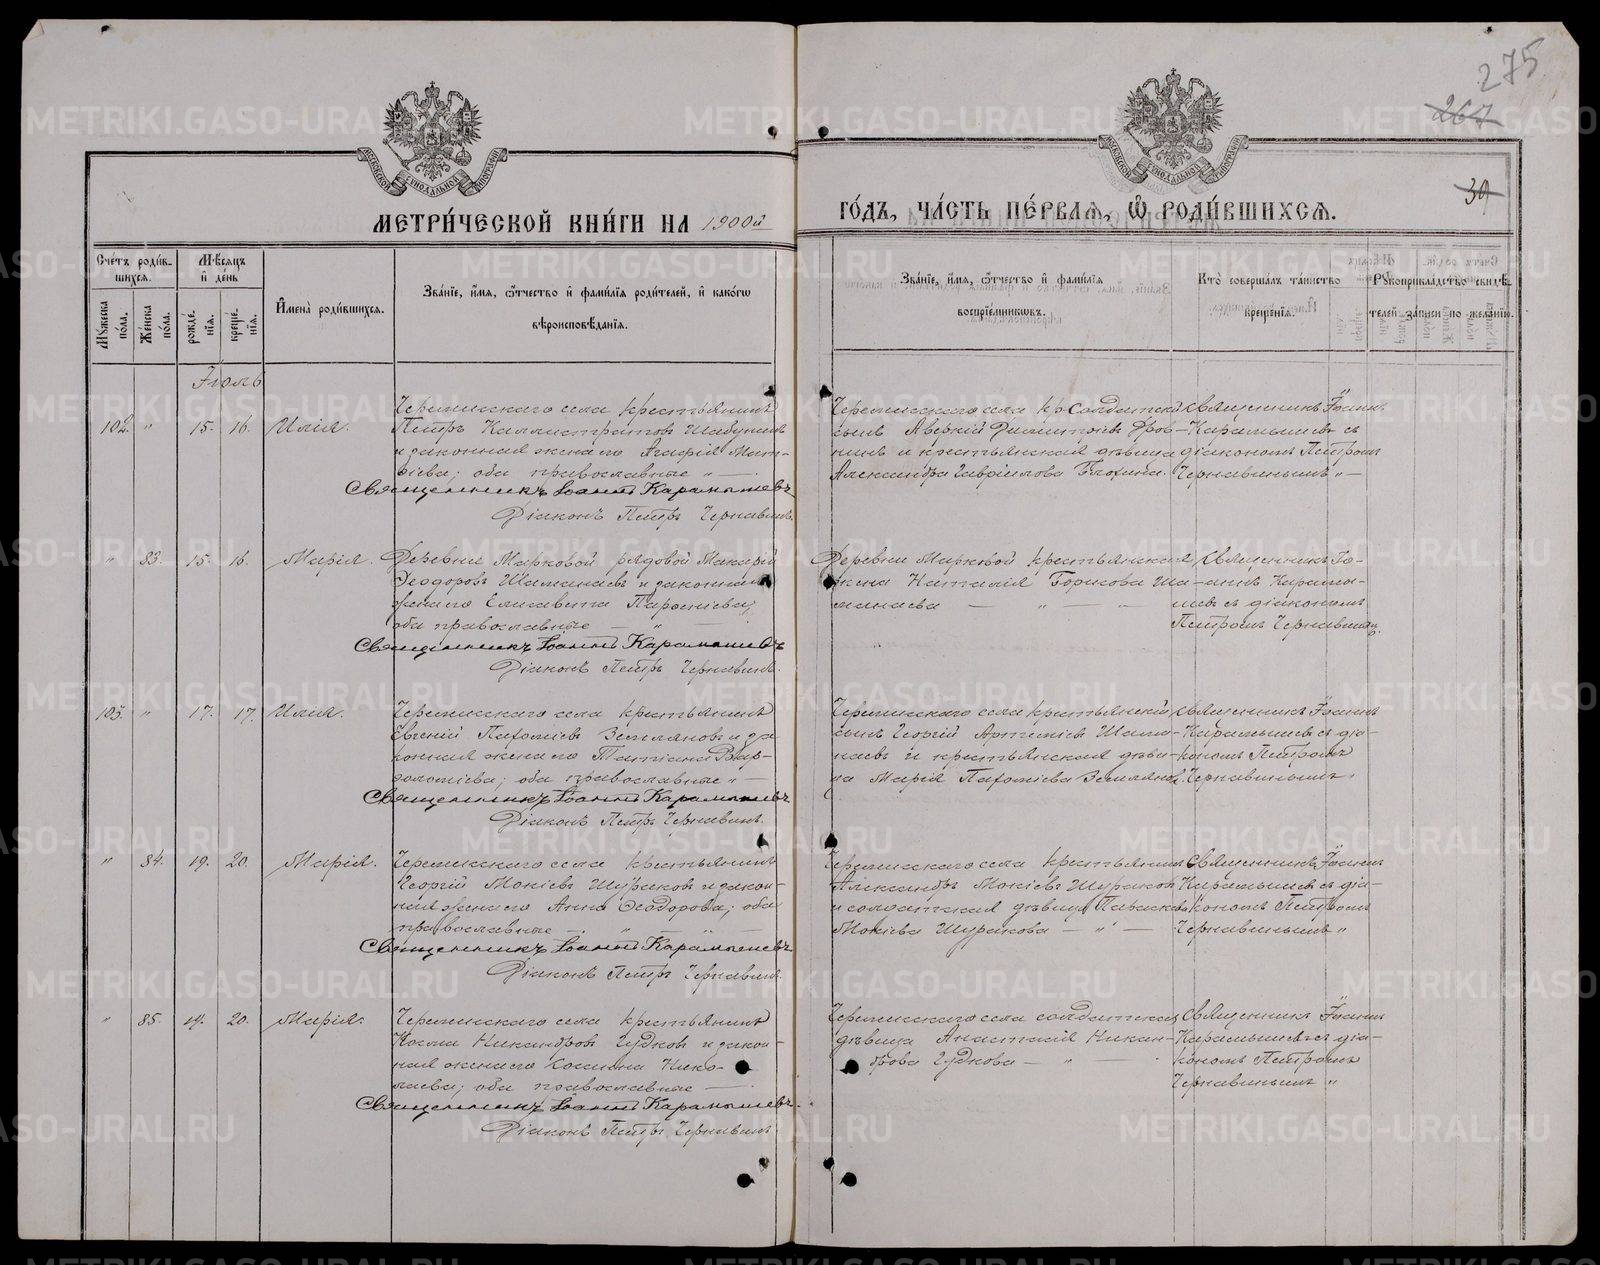 275
267
39
МЕТРИ́ЧЕСКОЙ КНИ́ГИ НА 1900й
ГО́ДЪ, ЧА́СТЬ ПЕ́РВАѦ, Ѽ РОДИ́ВШИХСѦ.
Сче́тъ роди́в-
шихсѧ.
Мꙋжеска по́ла.
Же́нска по́ла.
Мѣ́сѧцъ и҆ де́нь
рожде́нїѧ.
креще́нїѧ.
И҆мена̀ роди́вшихсѧ.
Зва́нїе, и҆́мѧ, ѻ҆́тчество и҆ фамѝлїѧ роди́телей, и҆ како́гѡ
вѣроисповѣ́данїѧ.
Зва́нїе, и҆́мѧ, ѻ҆́тчество и҆ фамѝлїѧ
воспрїе́мникѡвъ.
Кто̀ соверша́лъ та́инство
креще́нїѧ.
Рꙋкоприкла́дство свидѣ́-
телей за́писи по жела́нїю.
Іюль
102. " 15. 16. Илія.
Черемисскаго села крестьянинъ
Петръ Каллистратовъ Шабунинъ
и законная жена его Агафія Мат-
вѣева; оба православные "—
Священникъ Іоаннъ Карамышевъ
Діаконъ Петръ Чернавинъ.
Черемисскаго села кр. солдатскій
сынъ Аверкій
и крестьянская дѣвица
Александра Гавріилова
Священникъ Іоаннъ
Карамышевъ съ
діакономъ Петромъ
Чернавинымъ "—
" 83. 15. 16. Марія.
Деревни Марковой рядовой Макарій
Ѳеодоровъ Шаманаевъ и законная
жена его Елисавета Парѳеніева;
оба православные — " —
Священникъ Іоаннъ Карамышевъ
Діаконъ Петръ Чернавинъ.
Деревни Марковой крестьянская
жена Наталія Борисова Ша-
манаева — " — "
Священникъ Іо-
аннъ Карамы-
шевъ съ діакономъ
Петромъ Чернавинымъ.
103. " 17. 17. Илія.
Черемисскаго села крестьянинъ
Евгеній Пахоміевъ Земляновъ и за-
конная жена его Татіана Вар-
ѳоломіева; оба православные "—
Священникъ Іоаннъ Карамышевъ
Діаконъ Петръ Чернавинъ.
Черемисскаго села крестьянскій
сынъ Георгій Артеміевъ Шама-
наевъ и крестьянская дѣви-
ца Марія Пахоміева Землянова.
Священникъ Іоаннъ
Карамышевъ съ діа-
кономъ Петромъ
Чернавинымъ.
" 84. 19. 20. Марія.
Черемисскаго села крестьянинъ
Георгій Мокіевъ Шураковъ и закон-
ная жена его Анна Ѳеодорова; оба
православные — " — " —
Священникъ Іоаннъ Карамышевъ
Діаконъ Петръ Чернавинъ.
Черемисскаго села крестьянинъ
Александръ Мокіевъ Шураковъ
и солдатская дѣвица Параскева
Мокіева Шуракова — " —
Священникъ Іоаннъ
Карамышевъ съ діа-
кономъ Петромъ
Чернавинымъ "
" 85. 19. 20. Марія.
Черемисскаго села крестьянинъ
Косма Никандровъ Гудковъ и закон-
ная жена его Нико-
лаева; оба православные —
Священникъ Іоаннъ Карамышевъ
Діаконъ Петръ Чернавинъ
Черемисскаго села солдатская
дѣвица Анастасія Никан-
дрова Гудкова — " —
Священникъ Іоаннъ
Карамышевъ съ діа-
кономъ Петромъ
Чернавинымъ "
METRIKI.GASO-URAL.RU